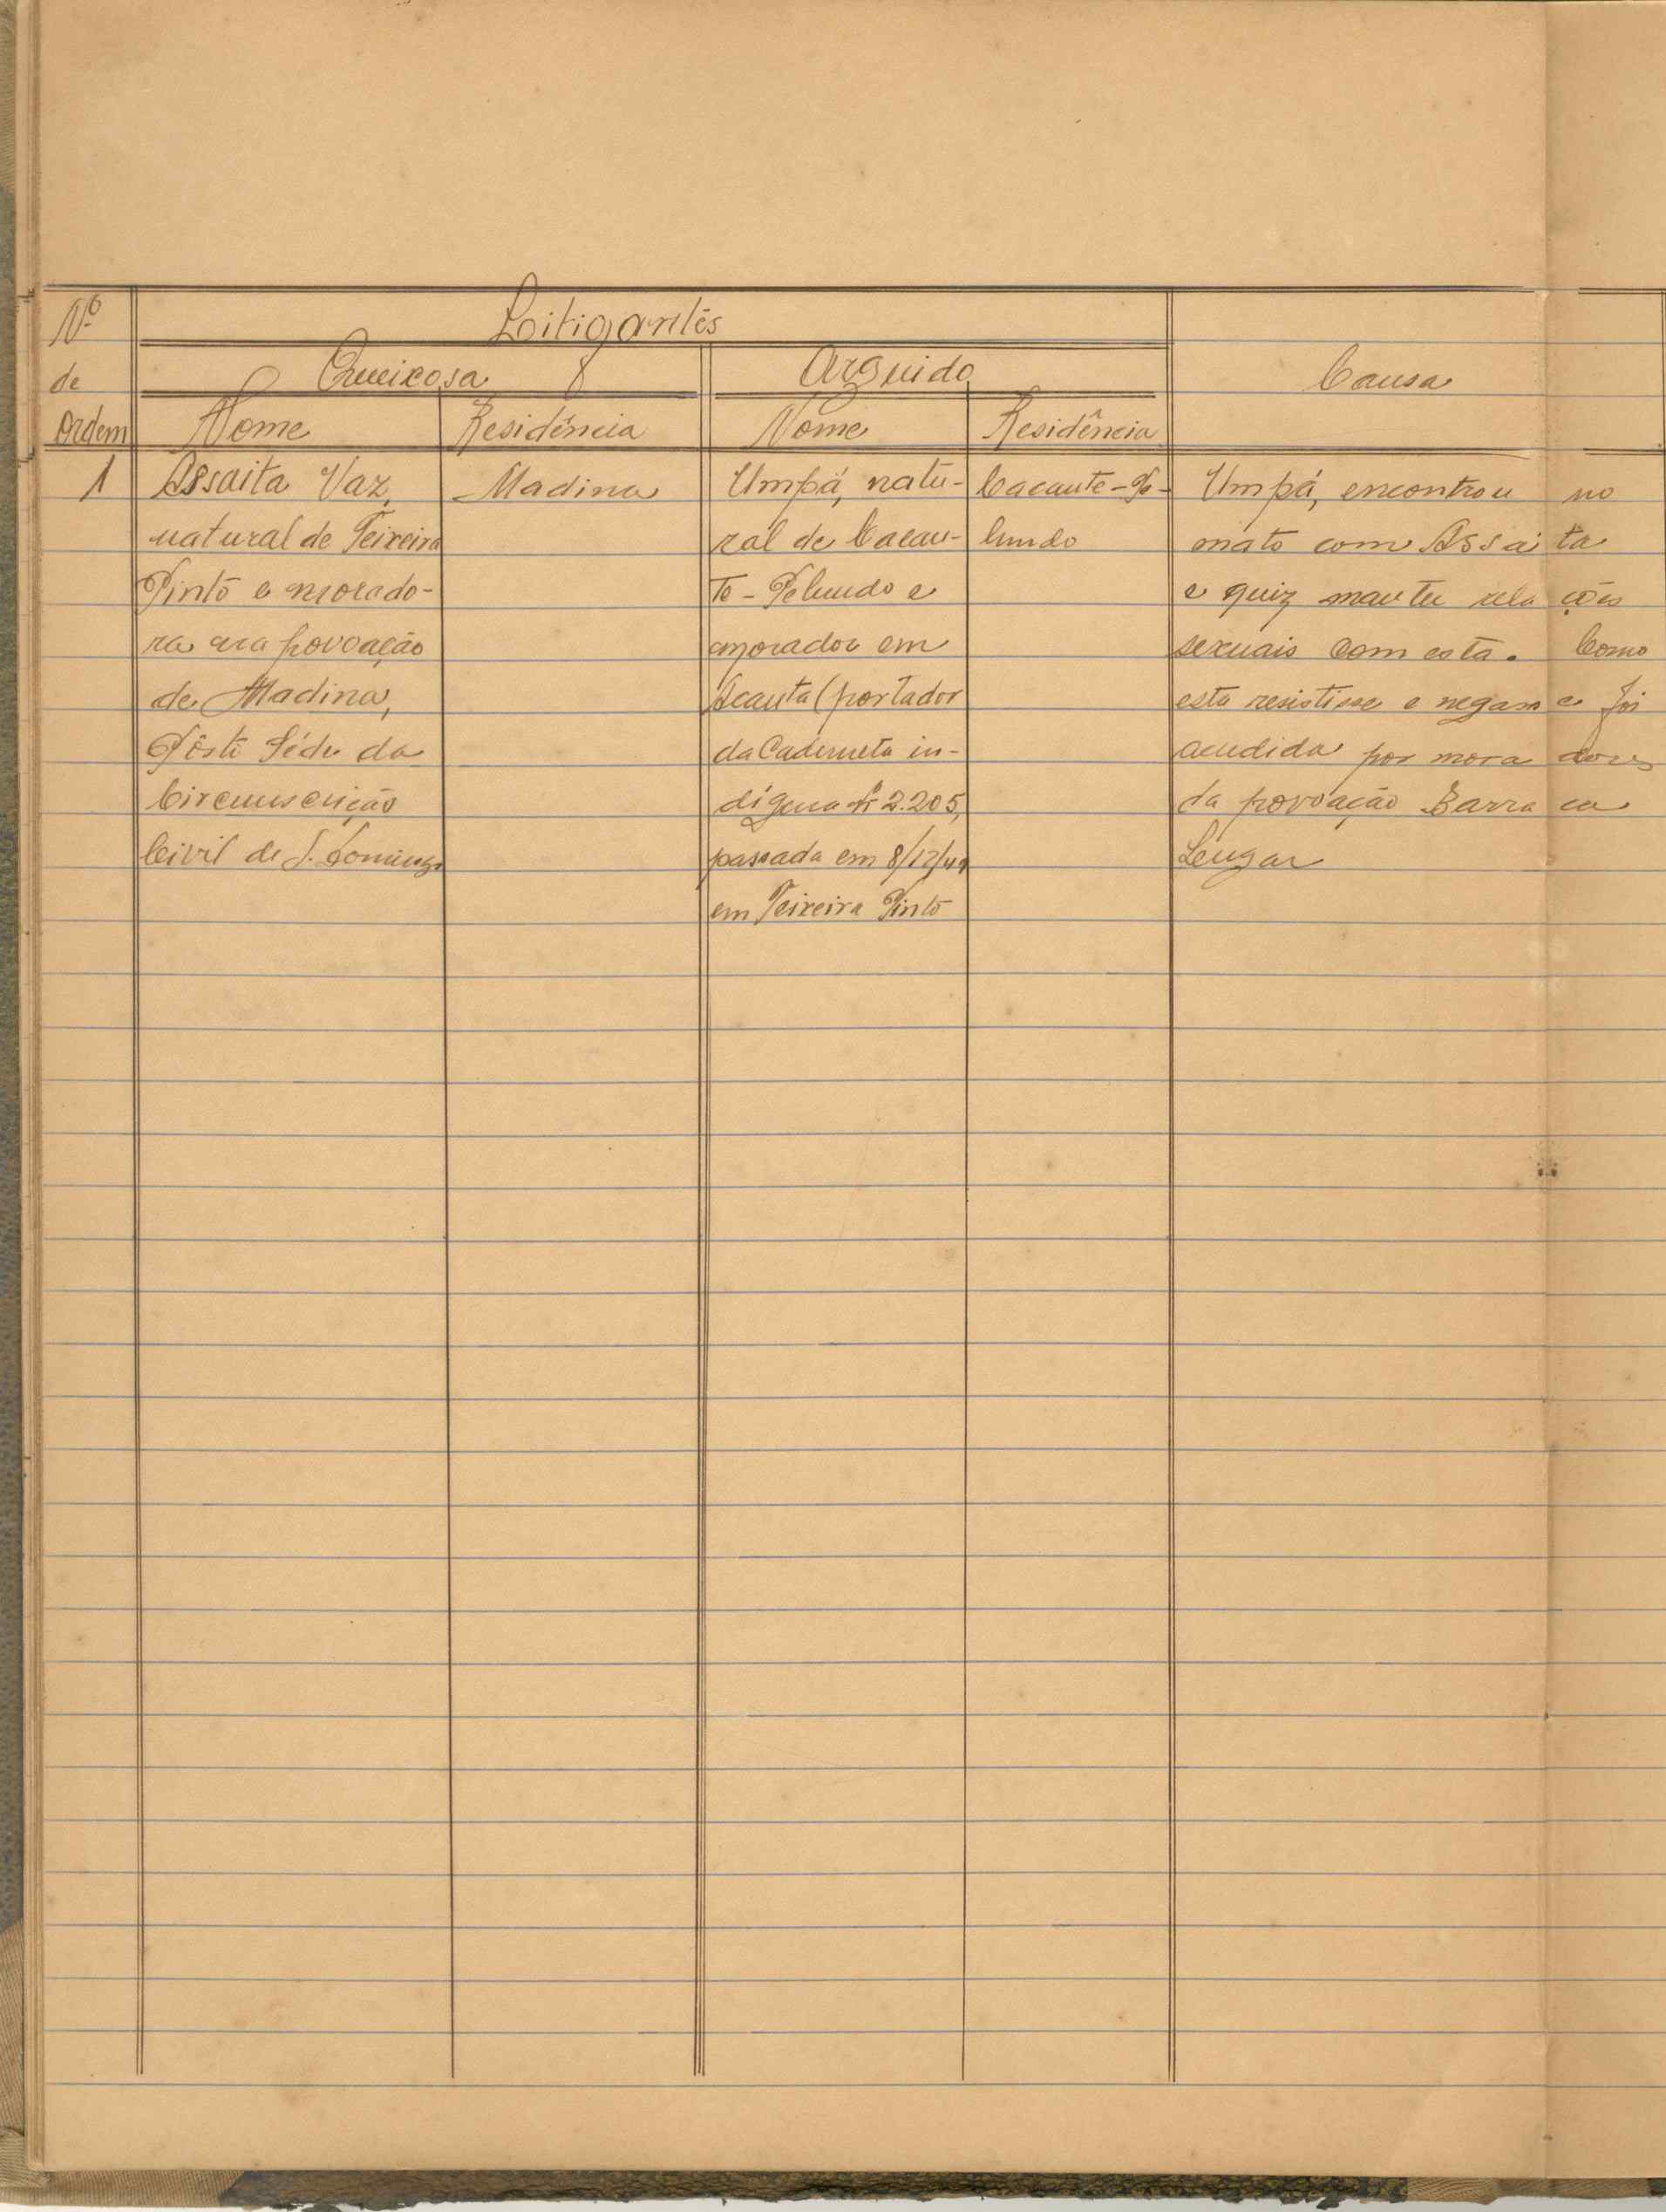 Nº de Ordem
Litigantes
Queixosa
Arguido
Causa
Nome
Residência
Nome
Residência
1
Assaita Vaz,
natural de Teixeira
Pinto e morado-
ra na povoação
de Madina,
Pôsto Séde da
Circunscrição
Civil de S. Domingos
Madina
Umpá, natu-
ral de Cacau-
to-Pelundo e
morador em
Acauta (portador
da Caderneta in-
dígena nº 2.205,
passada em 8/12/49
em Teixeira Pinto
Cacaute-Pe-
lundo
Umpá, encontrou no
mato com Assaita
e quiz manter relações
sexuais com esta. Como
esta resistisse e negasse foi
acudida por moradores
da povoação Barraca
Lengar